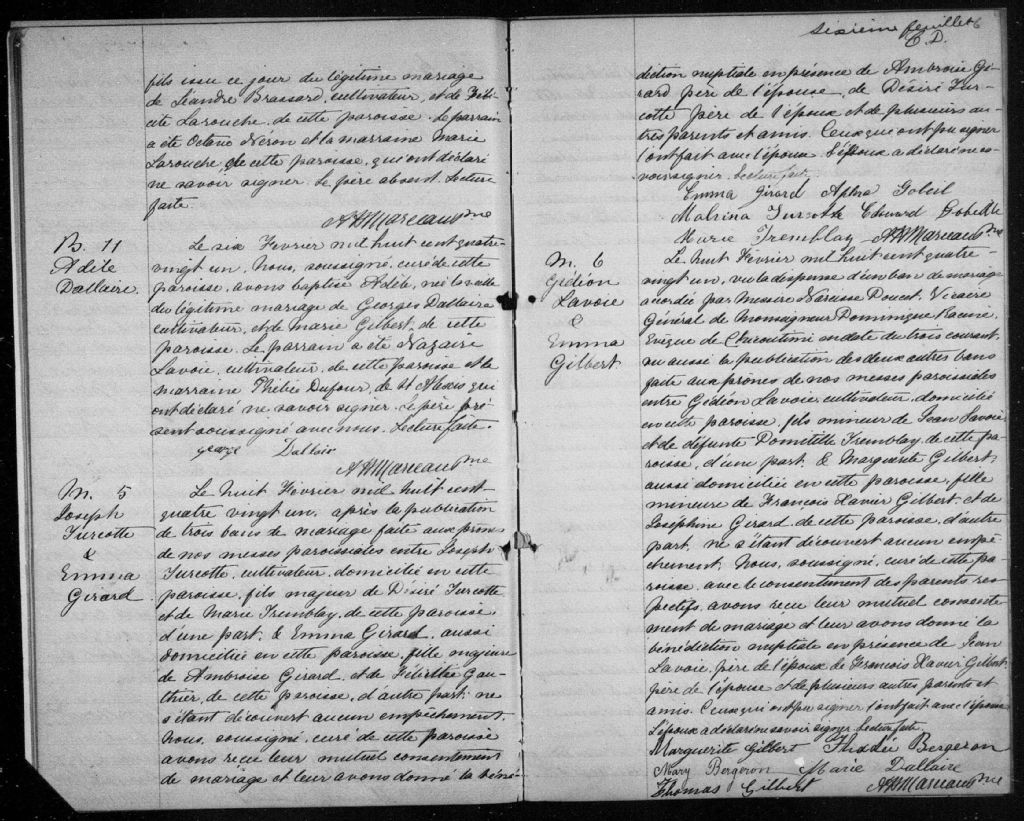 fils issu ce jour du légitime mariage
de Léandre Brassard, cultivateur, et de Féli-
cité Larouche, de cette paroisse. Le parrain
a été Octave Néron et la marraine Marie
Larouche, de cette paroisse, qui ont déclaré
ne savoir signer. Le père absent. Lecture
faite.
B. 11
Adèle
Dallaire.
Le six Février mil huit cent quatre-
vingt un, Nous, soussigné, curé de cette
paroisse, avons baptisé Adèle, née la veille
du légitime mariage de Georges Dallaire
cultivateur, et de Marie Gilbert, de cette
paroisse. Le parrain a été Nazaire
Lavoie, cultivateur, de cette paroisse et la
marraine Phébée Dufour, de St Alexis qui
ont déclaré ne savoir signer. Le père pré-
sent soussigné avec nous. Lecture faite.
george Dallair
M. 5
Joseph
Turcotte
&
Emma
Girard
Le huit Février mil huit cent
quatre vingt un, après la publication
de trois bans de mariage faite aux prônes
de nos messes paroissiales entre Joseph
Turcotte, cultivateur, domicilié en cette
paroisse, fils majeur de Désiré Turcotte
et de Marie Tremblay, de cette paroisse
d'une part, & Emma Girard, aussi
domiciliée en cette paroisse, fille majeure
de Ambroise Girard, et de Gau-
thier, de cette paroisse, d'autre part; ne
s'étant découvert aucun empêchement,
Nous, soussigné, curé de cette paroisse
avons reçu leur mutuel consentement
de mariage et leur avons donné la béné-
sixième feuillet 6
C. D.
diction nuptiale en présence de Ambroise Gi-
rard père de l'épouse, de Désiré Tur-
cotte père de l'époux et de plusieurs au-
tres parents et amis. Ceux qui ont pu signer
l'ont fait avec l'épouse. L'époux a déclaré ne sa-
voir signer. Lecture faite.
Emma Girard Goleil
Malvina Turcotte Edward
Marie Tremblay
M. 6
Gédéon
Lavoie
&
Emma
Gilbert
Le huit Février mil huit cent quatre-
vingt un, vu la dispense d'un ban de mariage
accordée par Messire Narcisse Doucet, Vicaire
Général de Monseigneur Dominique Racine,
Evêque de Chicoutimi en date du trois courant,
vu aussi la publication des deux autres bans
faite aux prônes de nos messes paroissiales
entre Gédéon Lavoie, cultivateur, domicilié
en cette paroisse, fils mineur de Jean Lavoie
et de défunte Domitilde Tremblay, de cette pa-
roisse, d'une part, & Marguerite Gilbert,
aussi domiciliée en cette paroisse, fille
mineure de François Xavier Gilbert, et de
Joséphine Girard, de cette paroisse, d'autre
part, ne s'étant découvert aucun empê-
chement, Nous, soussigné, curé de cette pa-
roisse, avec le consentement des parents res-
pectifs, avons reçu leur mutuel consente
ment de mariage et leur avons donné la
bénédiction nuptiale en présence de Jean
Lavoie, père de l'époux de François Xavier Gilbert,
père de l'épouse et de plusieurs autres parents et
amis. Ceux qui ont pu signer l'ont fait avec l'épouse
L'époux a déclaré ne savoir signer. Lecture faite.
Marguerite Gilbert Thadée Bergeron
Mary Bergeron Marie Dallaire
Thomas Gilbert